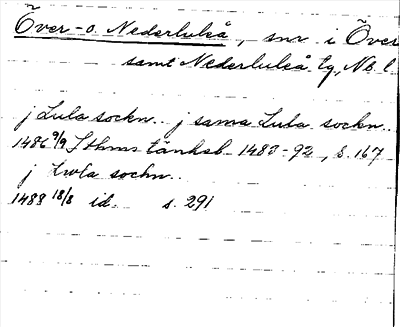 Över- o. Nederluleå, snr i Över
samt Nederluleå tg, Nb l
j Lula sockn.. j sama Lula sockn..
1486 9/9 Sthms tänkeb 1483-92, s. 167
j lwla sockn..
1488 18/8 id. s. 291